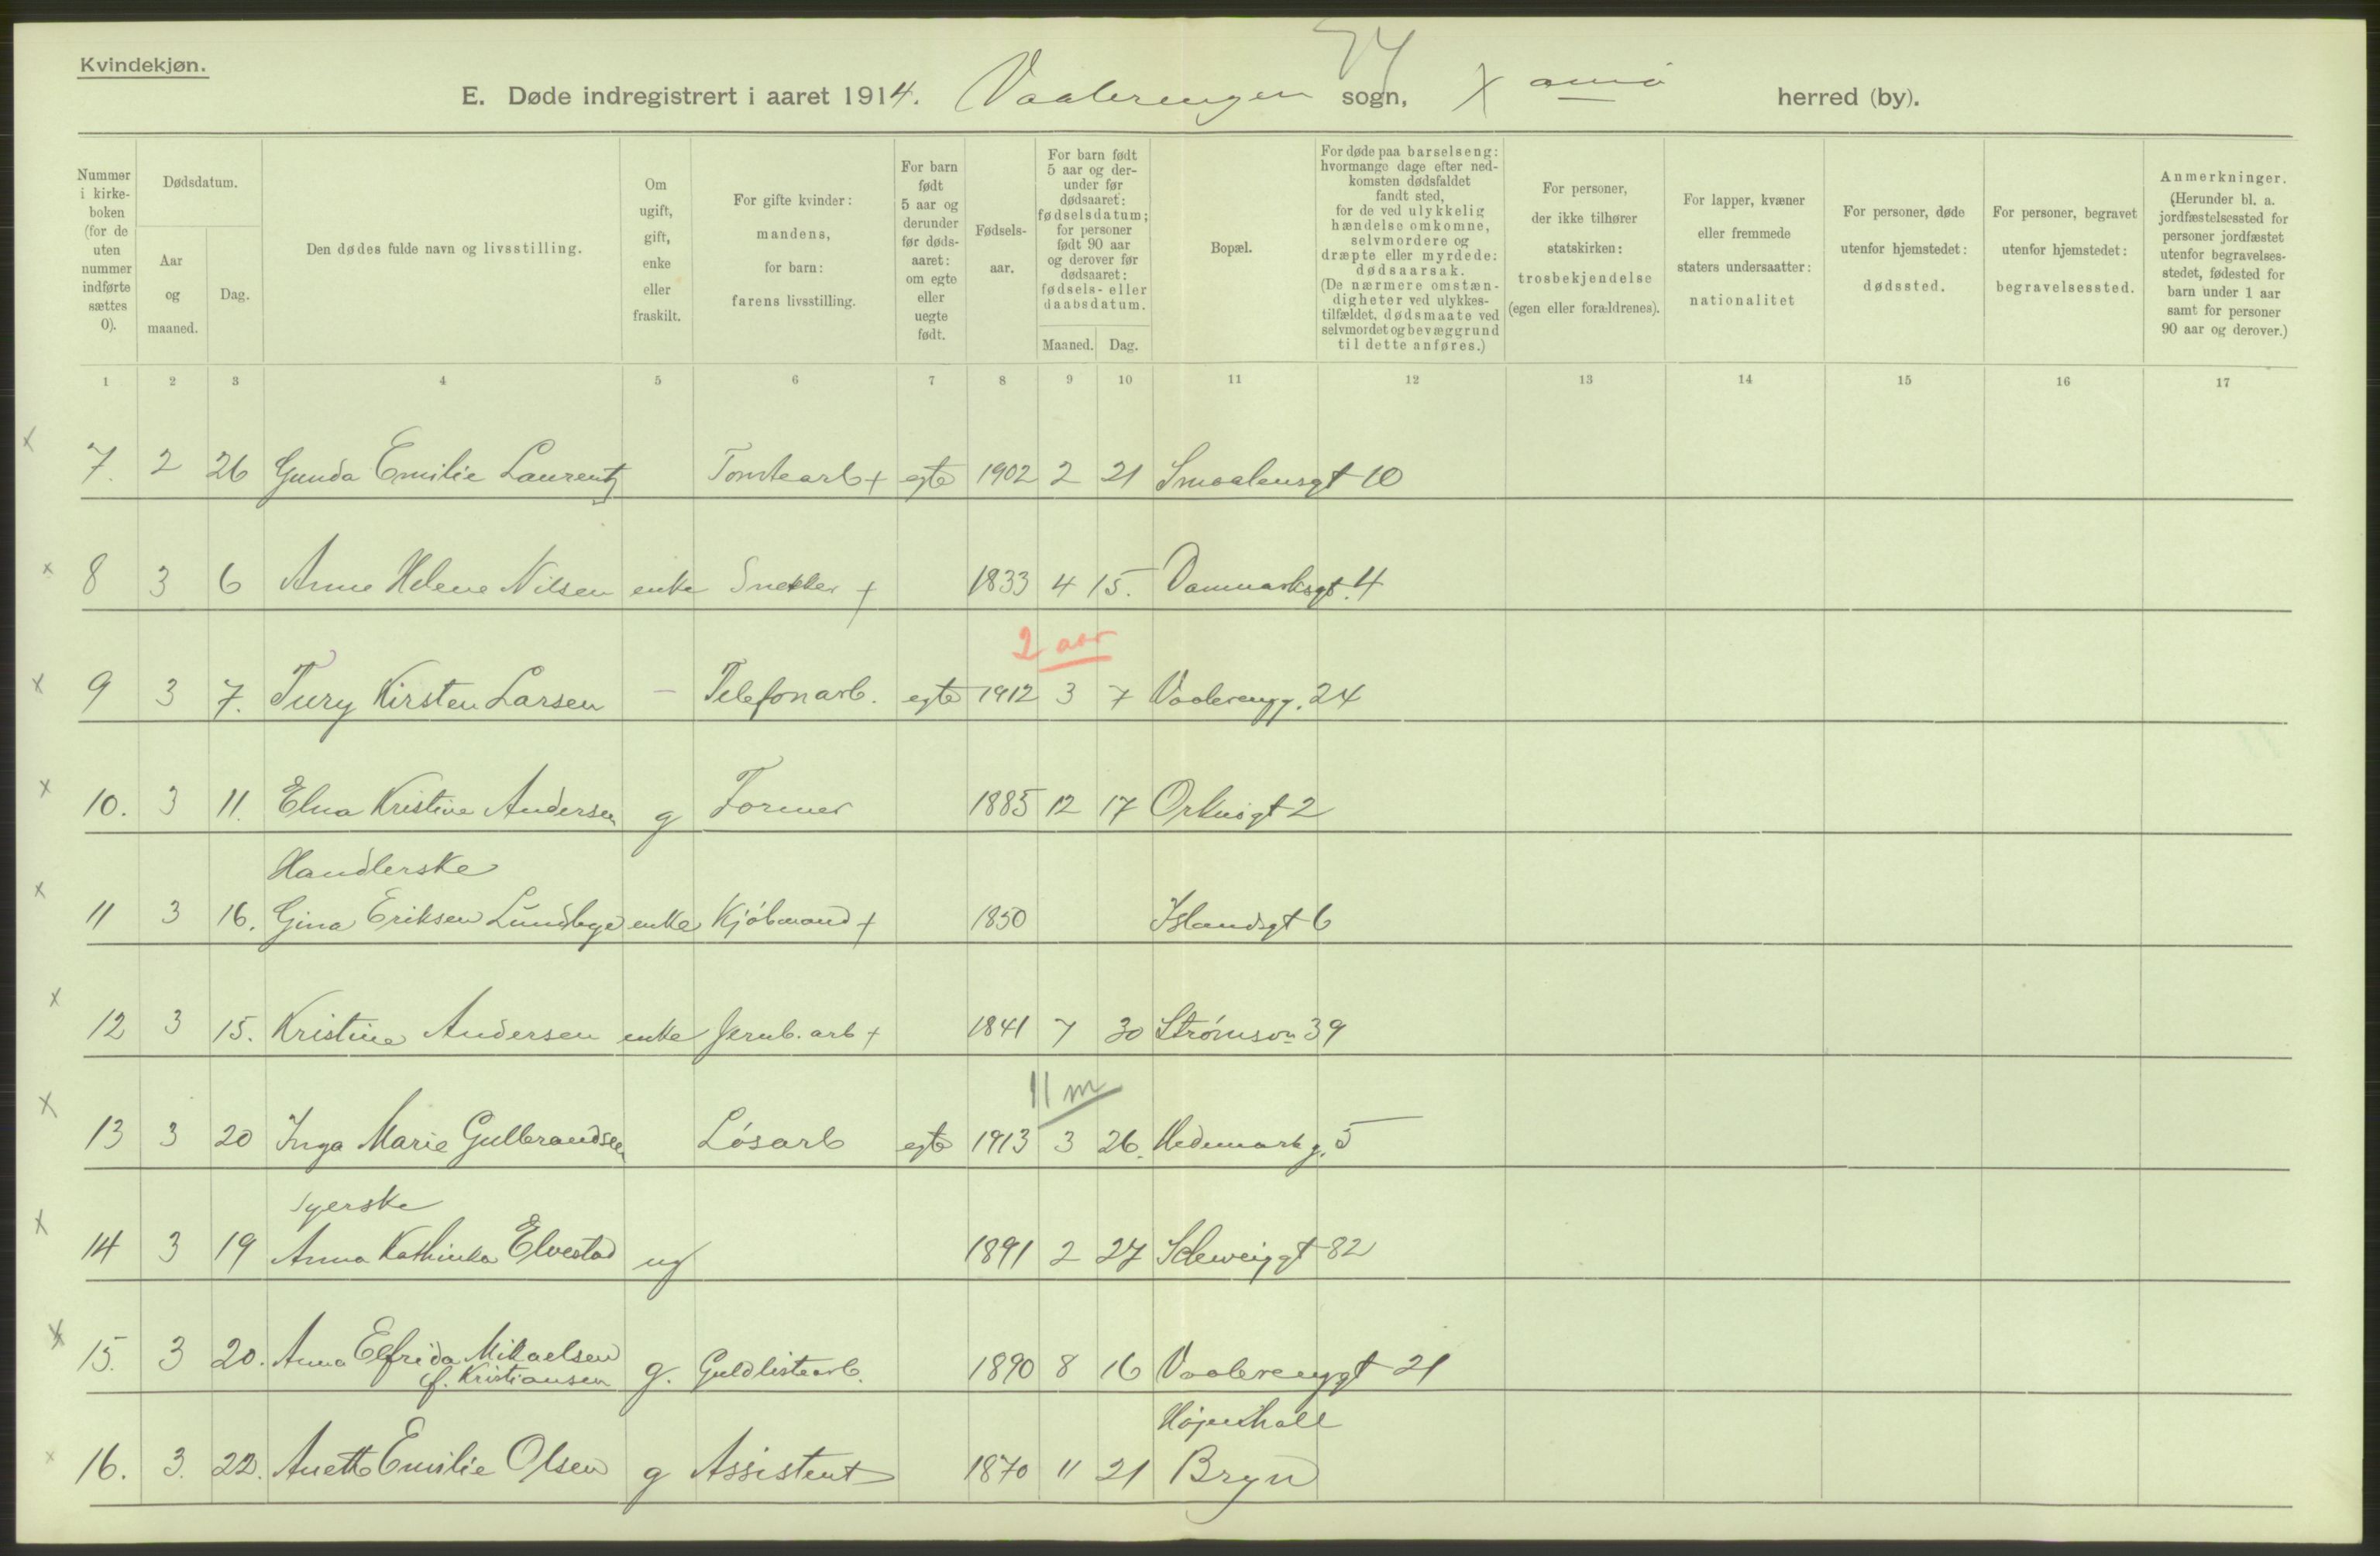 Kvindekjøn.
74
E. Døde indregistrert i aaret 1914. Vaalerengen sogn, X herred (by).
Nummer i kirkeboken (for de uten nummer indførte sættes 0).
Dødsdatum.
Aar og maaned.
Dag.
Den dødes fulde navn og livsstilling.
Om ugift, gift, enke eller fraskilt.
For gifte kvinder: mandens, for barn: farens livsstilling.
For barn født 5 aar og derunder før dødsaaret: om egte eller uegte født.
Fødselsaar.
For barn født 5 aar og derunder før dødsaaret: fødselsdatum; for personer født 90 aar og derover før dødsaaret: fødsels- eller daabsdatum.
Maaned. Dag.
Bopæl.
For døde paa barselseng: hvormange dage efter nedkomsten dødsfaldet fandt sted, for de ved ulykkelig hændelse omkomne, selvmordere og dræpte eller myrdede: dødsaarsak. (De nærmere omstændigheter ved ulykkestilfældet, dødsmaate ved selvmordet og bevæggrund til dette anføres.)
For personer, der ikke tilhører statskirken: trosbekjendelse (egen eller forældrenes).
For lapper, kvæner eller fremmede staters undersaatter: nationalitet
For personer, døde utenfor hjemstedet: dødssted.
For personer, begravet utenfor hjemstedet: begravelsessted.
Anmerkninger. (Herunder bl. a. jordfæstelsessted for personer jordfæstet utenfor begravelsesstedet, fødested for barn under 1 aar samt for personer 90 aar og derover.)
1 2 3 4 5 6 7 8 9 10 11 12 13 14 15 16 17
x 7. 2 26 Gunda Emilie Laurentz Tomtearb + egte 1902 2 21 Smaalensgt 10
x 8 3 6 Anne Helene Nilsen enke Snekker + 1833 4 15. Danmarksgt. 4
2 aar
x 9 3 7. Tury Kirsten Larsen - Telefonarb. egte 1912 3 7 Vaalerengg. 24
x 10. 3 11. Elna Kristine Andersen g Former 1885 12 17 Orknigt 2
Handlerske
x 11 3 16. Gina Eriksen Lundbye enke Kjöbmand + 1850 Islandsgt 6
x 12 3 15. Kristine Andersen enke Jernb. arb + 1841 7 30 Strømsvn 39
11 m
x 13 3 20 Inga Marie Gulbrandsen Løsarb egte 1913 3 26. Hedemark g. 5
Syerske
x 14 3 19 Anna Kathinka Elvestad ug 1891 2 27 Schweiggt 82
x 15. 3 20. Anna Elfrida Mikaelsen
f. Kristiansen g. Guldlistearb. 1890 8 16 Vaalerenggt 21
Højenhall
x 16. 3. 22. Anette Emilie Olsen g Assistent 1870 11 21 Bryn